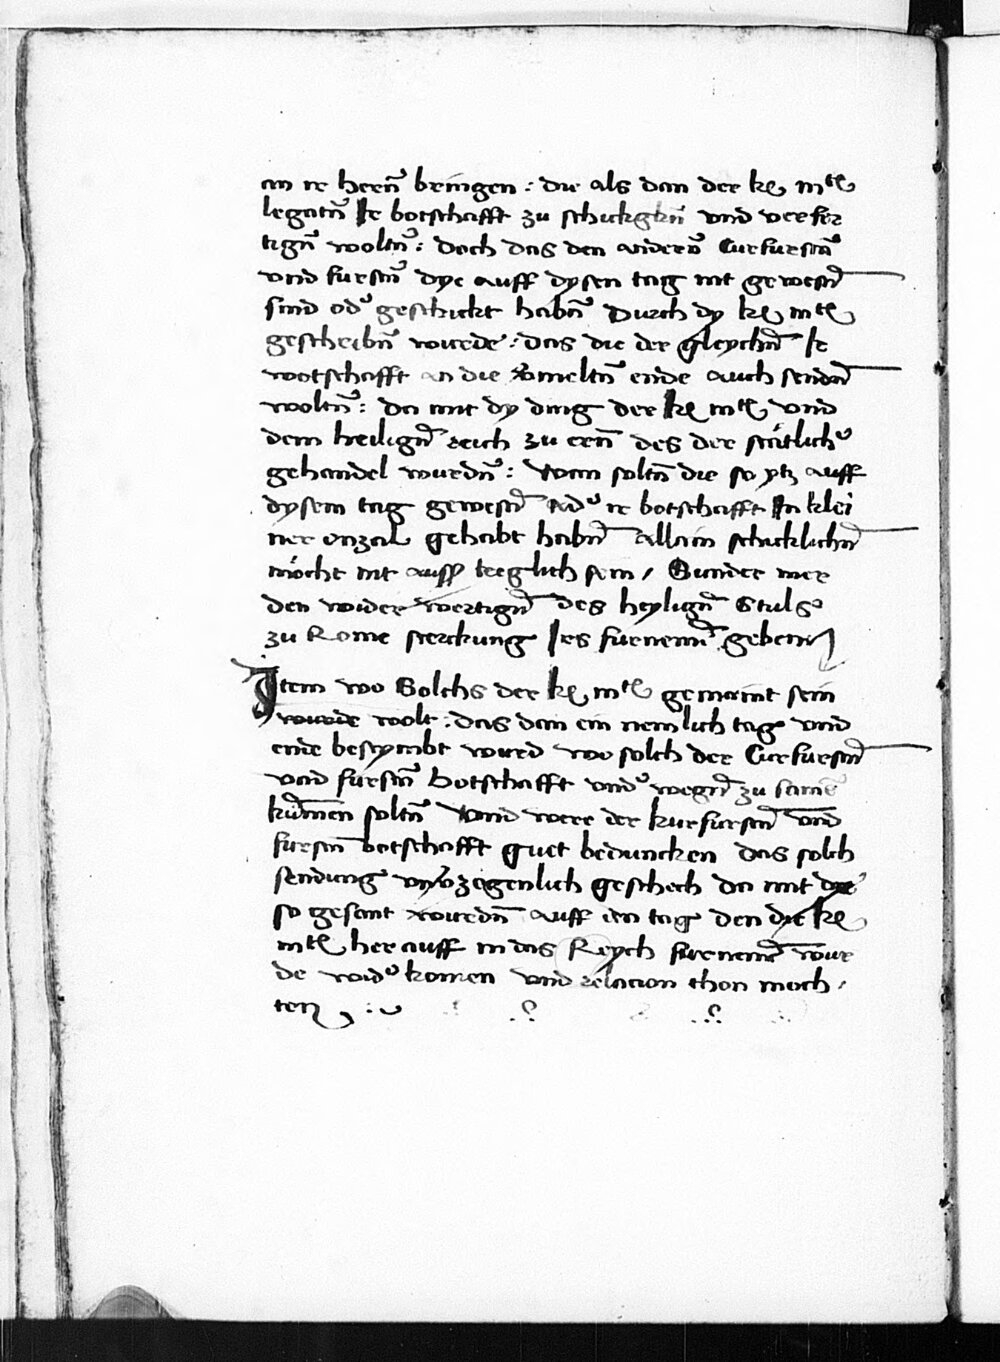 an ir herrn̄ bringen : die als dan der kl̃ mtl̃
legatn̄ Ir botschafft zu schickgkn̄ vnd verfer
tign̄ woltn̄ : doch das den andern̄ Curfurstn̄
vnd furstn̄ dye auff dysen tag nit gewestn̄
sind od' geschickt habn̄ Durch dy kl̃ mtl̃
gescheibn̄ wurde : das die der gleychn̄ Ir
wotschafft an die vermeltn̄ ende auch sendn̄
woltn̄ : da mit dy ding der kl̃ mtl̃ vnd
dem heilign̄ reich zu ern̄ des der statlich'
gehandel wurdn̄ : Wan soltn̄ die so ytz auff
dysem tag gewestn̄ Ad' ir botschafft In klei
ner anzal gehabt habn̄ Allain schicklichn̄
möcht nit auff treglich sein / Sunder mer
den wider wertign̄ des heylign̄ Stuls
zu Rome sterckung Ires furnemn̄ geben
Item wo Solchs der kl̃ mtl̃ gemaint sein
wurde wolt : das dan ein nemlich tag vnd
ende bestymbt wurd wo solch der Curfurstn̄
vnd furstn̄ Botschafft vnd' wegn̄ zu samē
kūmen soltn̄ Vnd were der kurfurstn̄ vnd
furstn̄ botschafft guet beduncken das solch
sendung vnv'zogenlich geschech da mit dye
so gesant wurdn̄ auff den tag den dye kl̃
mtl̃ her auff in das Reych furnemē wur
de wid' komen vnd relacion thon moch
ten